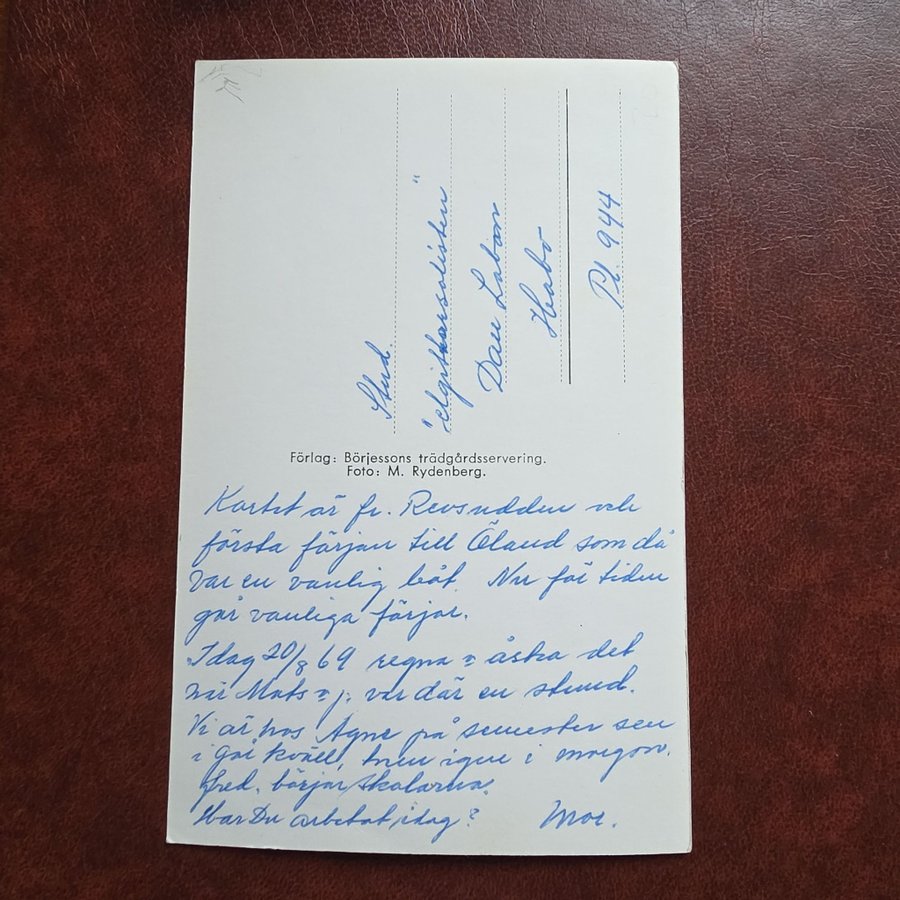 Stud.
"elgitarrsolisten"
Dan Laban
Habo
Pl 944
Förlag: Börjessons trädgårdsservering.
Foto: M. Rydenberg.
Kortet är fr. Revsudden och
första färjan till Öland som då
var en vanlig båt. Nu för tiden
går vanliga färjor.
Idag 20/8 69 regna o åska det
när Mats o j. var där en stund.
Vi är hos Agne på semester sen
i går kväll, hem igen i morgon.
fred. börjar skolorna.
Har Du arbetat idag? Mor.